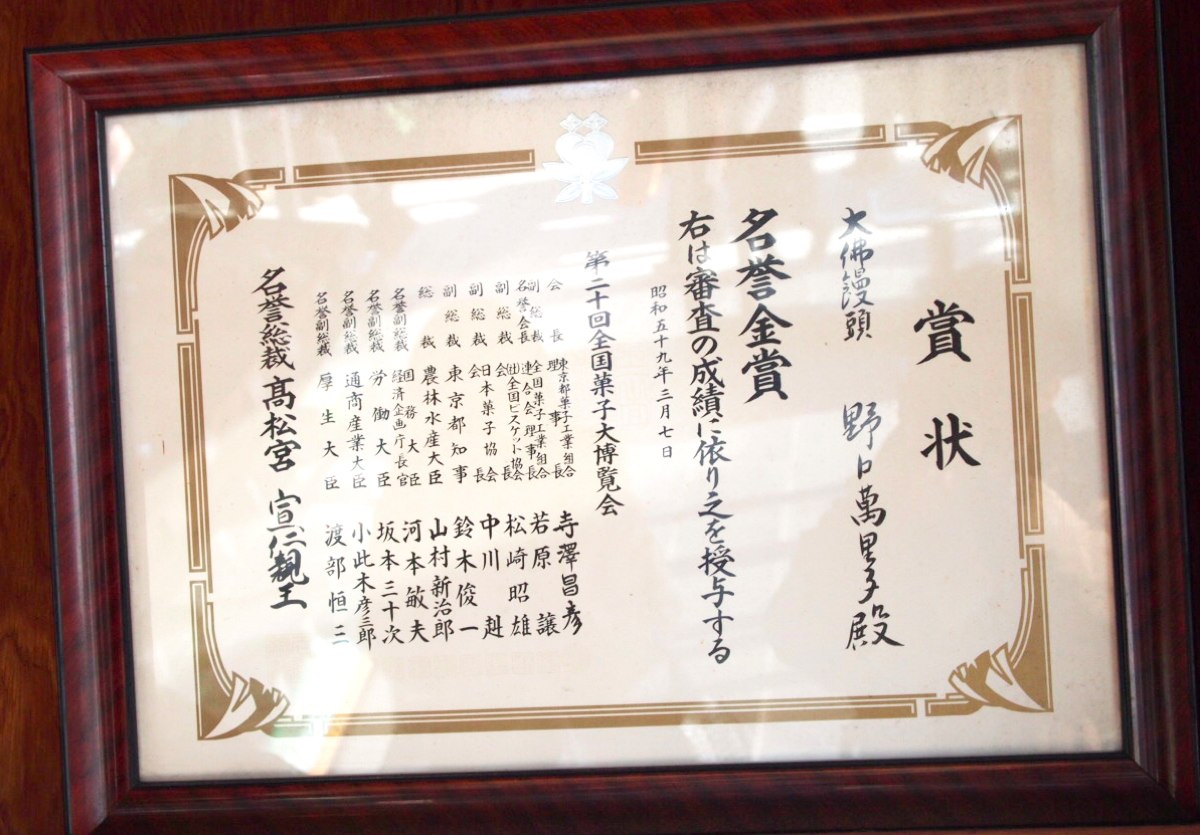 賞状
大佛饅頭 野口萬里子殿
名誉金賞
右は審査の成績に依り之を授与する
昭和五十九年三月七日
第二十回全国菓子大博覧会
会長 東京都菓子工業組合理事長 寺澤昌彦
副総裁名誉会長 全国菓子工業組合連合会理事長 若原讓
副総裁 (社)全国ビスケット協会会長 松崎昭雄
副総裁 日本菓子協会会長 中川赳
副総裁 東京都知事 鈴木俊一
総裁 農林水産大臣 山村新治郎
名誉副総裁 国務大臣経済企画庁長官 河本敏夫
名誉副総裁 労働大臣 坂本三十次
名誉副総裁 通商産業大臣 小此木彦三郎
名誉副総裁 厚生大臣 渡部恒三
名誉総裁 髙松宮 宣仁親王